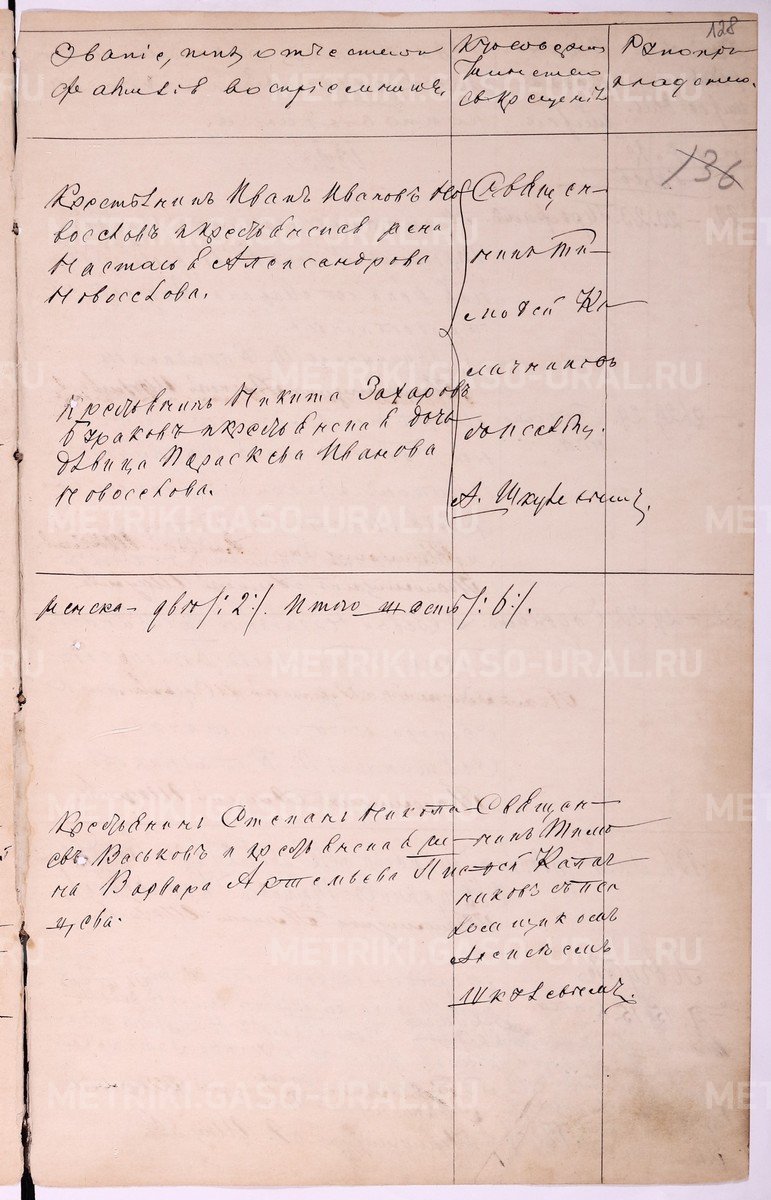 128
Званіе, имя, отчество и
фамилія воспріемниковъ.
Кто соверш.
Таинство
св. крещенія
Рукопри-
кладство.
136
Крестьянинъ Иванъ Ивановъ Но
воселовъ и крестьянская жена
Настасья Александрова
Новоселова.
Крестьянинъ Никита Захаровъ
и крестьянская дочь
дѣвица Параскева Иванова
Новоселова.
Священ-
никъ Ти-
моѳей Ка-
лачниковъ
съ псаломщ.
А.
женска- двѣ /: 2 :/. Итого шесть /: 6 :/.
Крестьянинъ Степанъ Никола-
евъ Васьковъ и крестьянская же-
на Варвара Артемьева
Священ-
никъ Тимо
ѳей Калач
никовъ съ пса
ломщикомъ
Алексѣемъ
METRIKI.GASO-URAL.RU